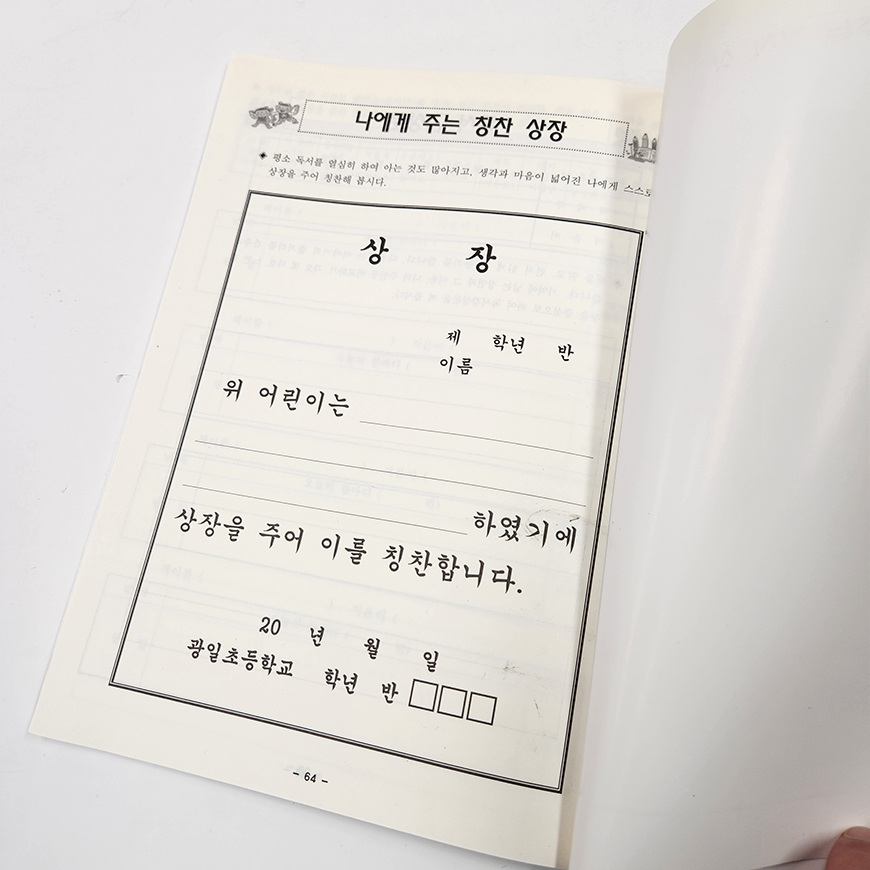 나에게 주는 칭찬 상장
◈ 평소 독서를 열심히 하여 아는 것도 많아지고, 생각과 마음이 넓어진 나에게 스스로
상장을 주어 칭찬해 봅시다.
상 장
제 학년 반
이름
위 어린이는
하였기에
상장을 주어 이를 칭찬합니다.
20 년 월 일
광일초등학교 학년 반
- 64 -